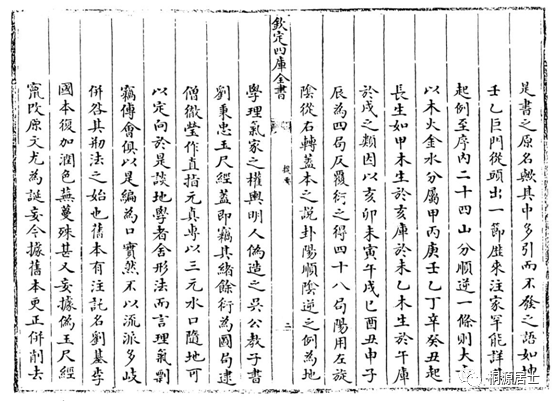 是書之原名歟其中多引而不發之語如坤
壬乙巨門從頭出一節歷來注家罕能詳其
起例至序內二十四山分順逆一條則大旨
以木火金水分屬甲丙庚壬乙丁辛癸丑起
長生如甲木生於亥庫於未乙木生於午庫
於戌之類因以亥卯未寅午戌巳酉丑申子
辰為四局反覆衍之得四十八局陽用左旋
陰從右轉蓋本之說卦陽順陰逆之例為地
欽定四庫全書
提要
二
學理氣家之權輿明人偽造之吳公教子書
劉秉忠玉尺經蓋即竊其緒餘衍為圖局逮
僧徹瑩作直指元真專以三元水口隨地可
以定向於是談地學者舍形法而言理氣剽
竊傅會俱以是編為口實然不以流派多岐
併咎其剏法之始也舊本有注託名劉基李
國本復加潤色蕪蔓殊甚又妄據偽玉尺經
竄改原文尤為誕妄今據舊本更正併削去
桐源居士